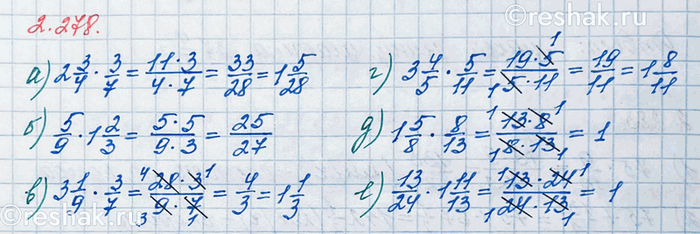 ©reshak.ru
2.278.
а) 2 3/4 · 3/7 = (11·3)/(4·7) = 33/28 = 1 5/28
б) 5/9 · 1 2/3 = (5·5)/(9·3) = 25/27
в) 3 1/9 · 3/7 = (4 28·3 1)/(3 9·7 1) = 4/3 = 1 1/3
г) 3 4/5 · 5/11 = (19·5 1)/(1 5·11) = 19/11 = 1 8/11
д) 1 5/8 · 8/13 = (1 13·8 1)/(1 8·13 1) = 1
е) 13/24 · 1 11/13 = (1 13·24 1)/(1 24·13 1) = 1
©reshak.ru